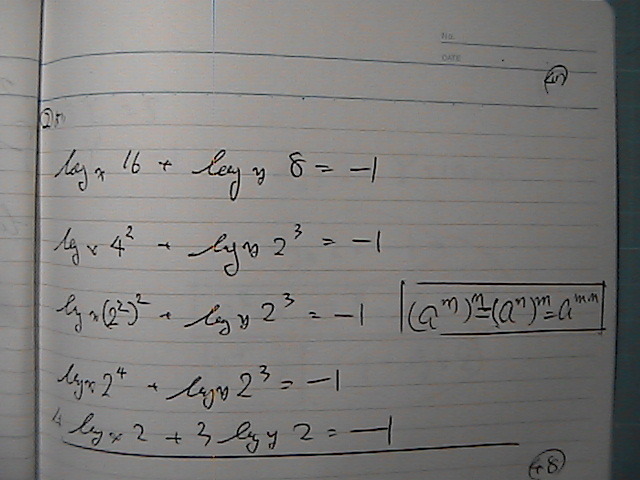 No.
DATE
log x 16 + log y 8 = -1
log x 4² + log y 2³ = -1
log x (2²)² + log y 2³ = -1 (aᵐ)ⁿ=(aⁿ)ᵐ=aᵐⁿ
log x 2⁴ + log y 2³ = -1
4 log x 2 + 3 log y 2 = -1
48